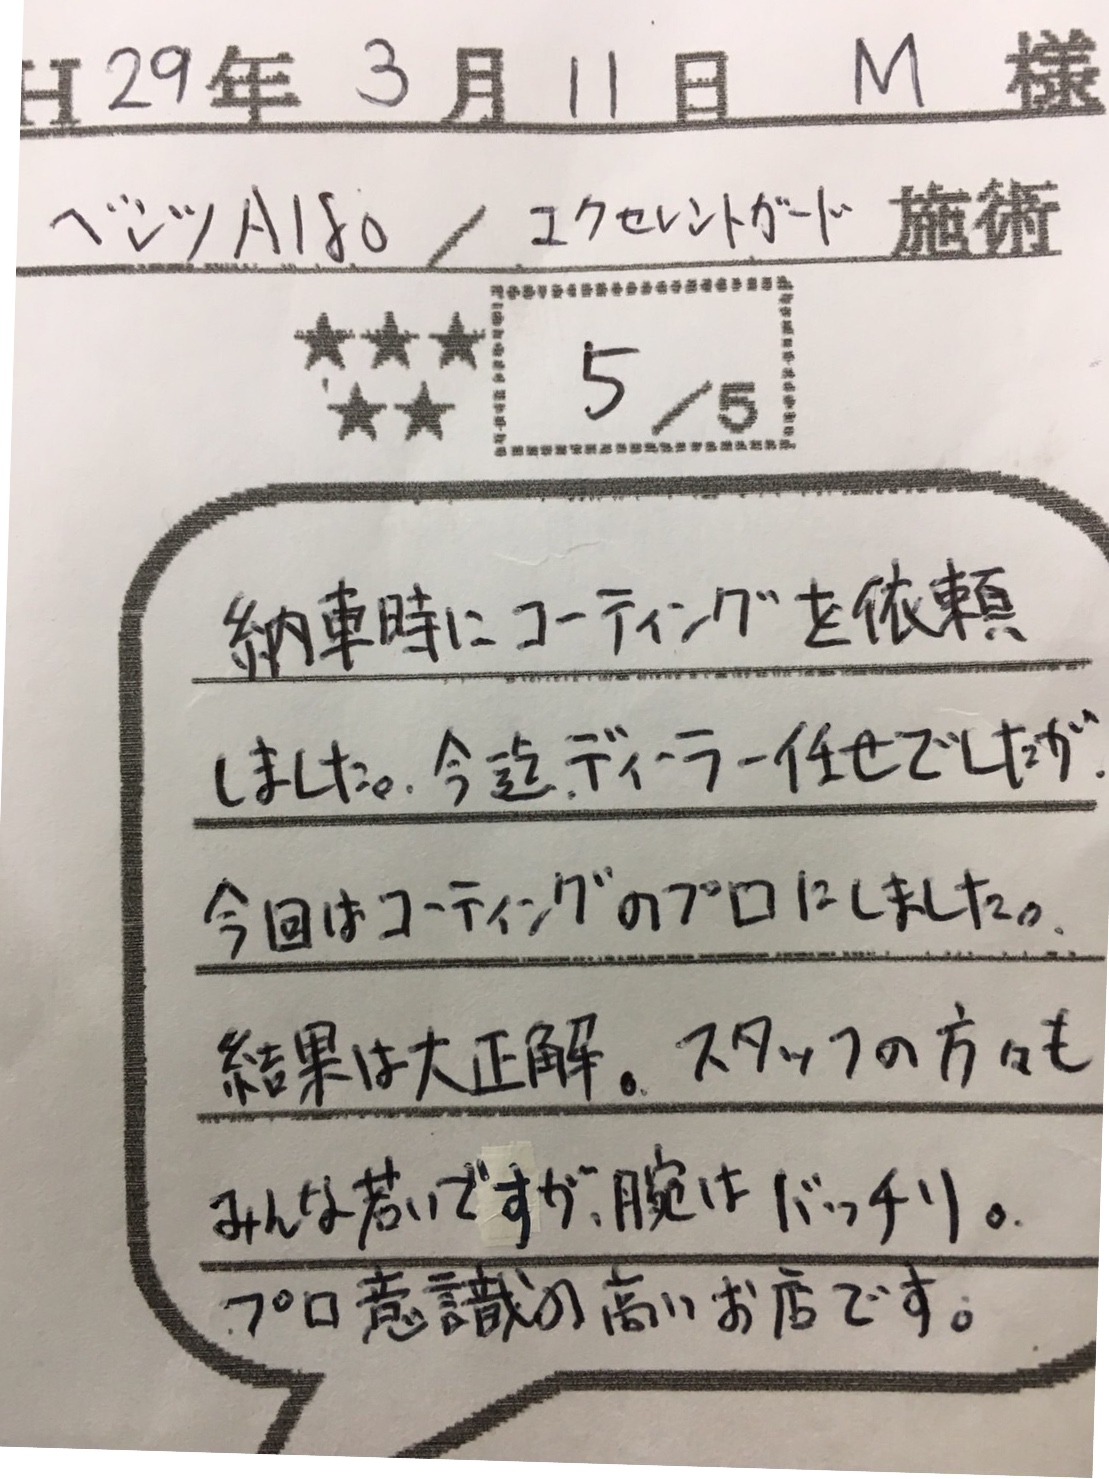 H29年3月11日 M 様
ベンツA180/エクセレントガード 施術
★★★
★★
5/5
納車時にコーティングを依頼
しました。今迄、ディーラー任せでしたが、
今回はコーティングのプロにしました。
結果は大正解。スタッフの方々も
みんな若いですが、腕はバッチリ。
プロ意識の高いお店です。